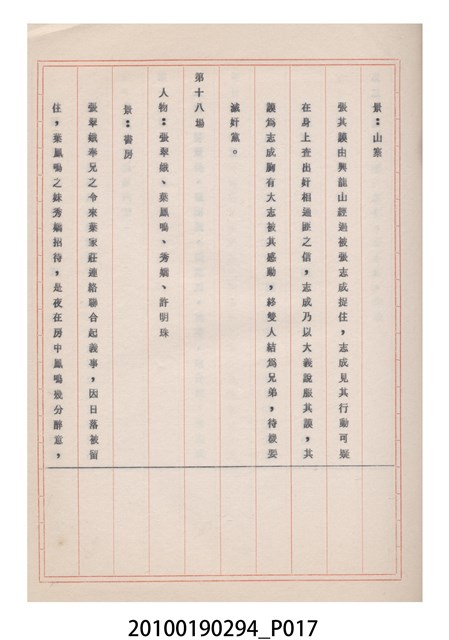 景：山寨
張其謨由興龍山經過被張志成捉住，志成見其行動可疑
在身上查出奸相通匪之信，志成乃以大義說服其謨，其
謨為志成胸有大志被其感動，終雙人結為兄弟，待機要
滅奸黨。
第十八場
人物：張翠娥、葉鳳鳴、秀嬌、許明珠
景：書房
張翠娥奉兄之令來葉家莊連絡聯合起義事，因日落被留
住，葉鳳鳴之妹秀嬌招待，是夜在房中鳳鳴幾分醉意，
20100190294_P017